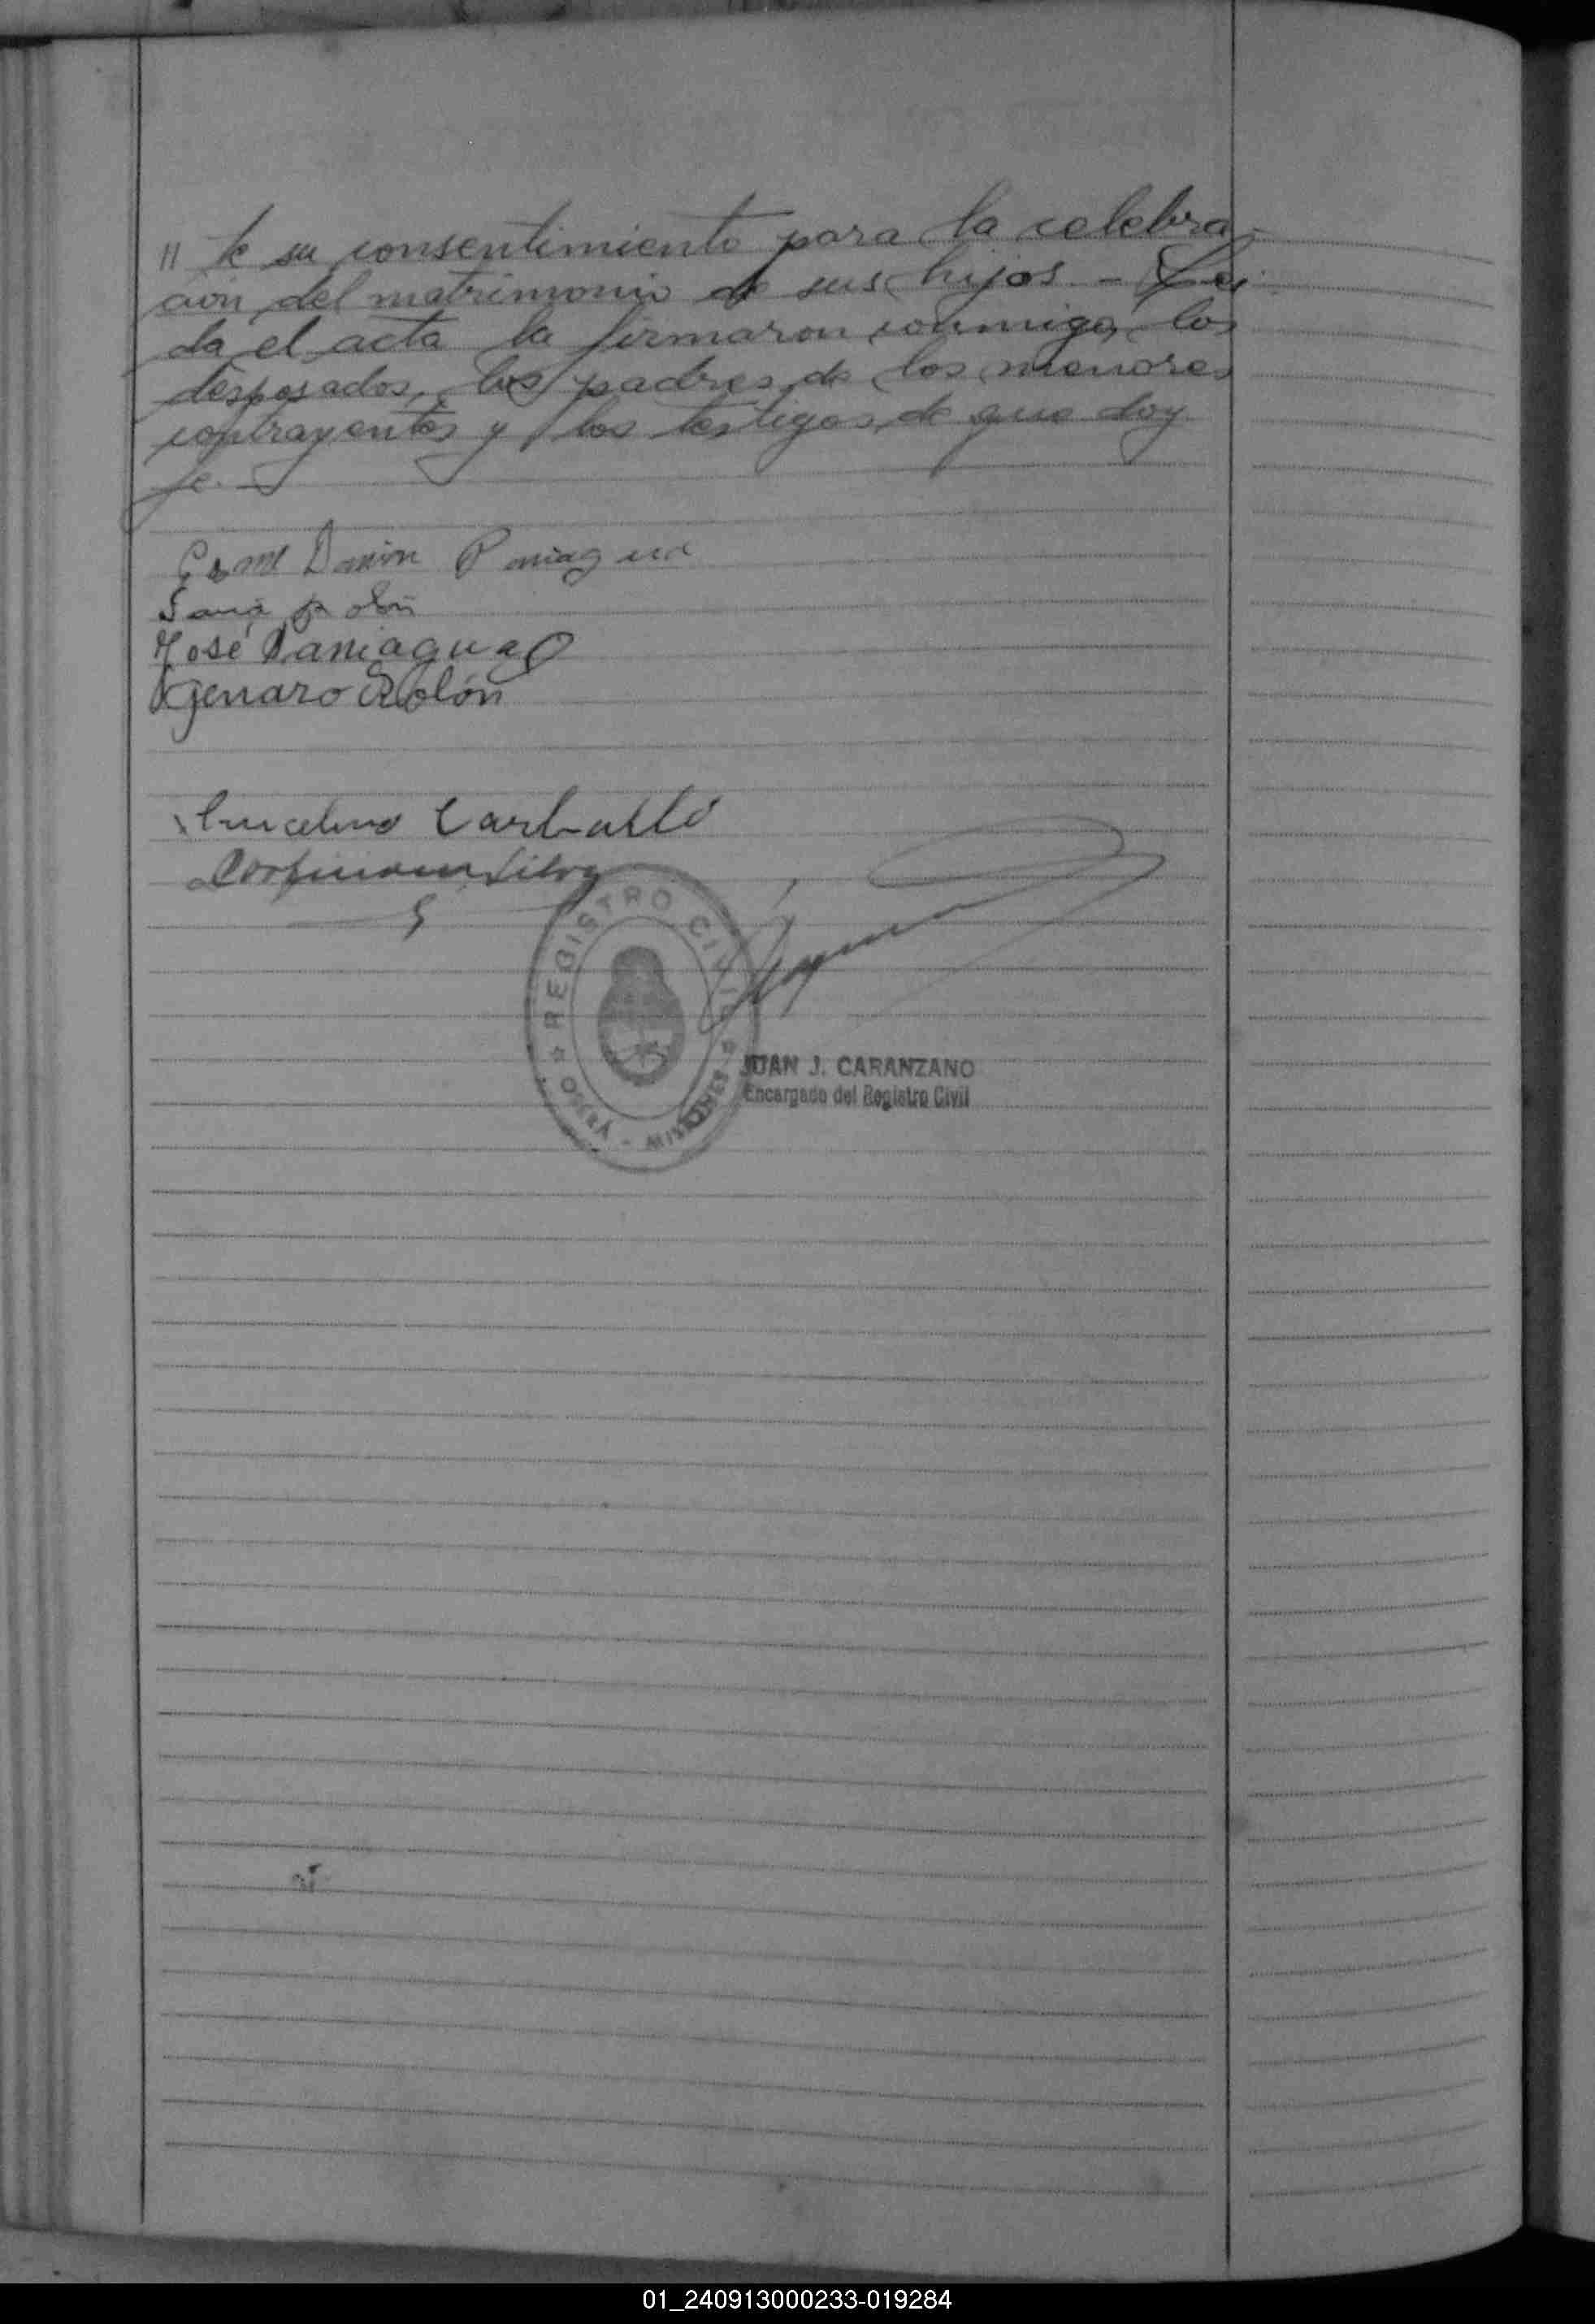 // te su consentimiento para la celebra-
ción del matrimonio de sus hijos. - Leí-
da el acta la firmaron conmigo, los
desposados, los padres de los menores
contrayentes y los testigos de que doy
fe. -
Paniagua
José Paniagua
Genaro Rolón
Carballo
Silva
REGISTRO CIVIL
OBERÁ - MISIONES
JUAN J. CARANZANO
Encargado del Registro Civil
01_240913000233-019284